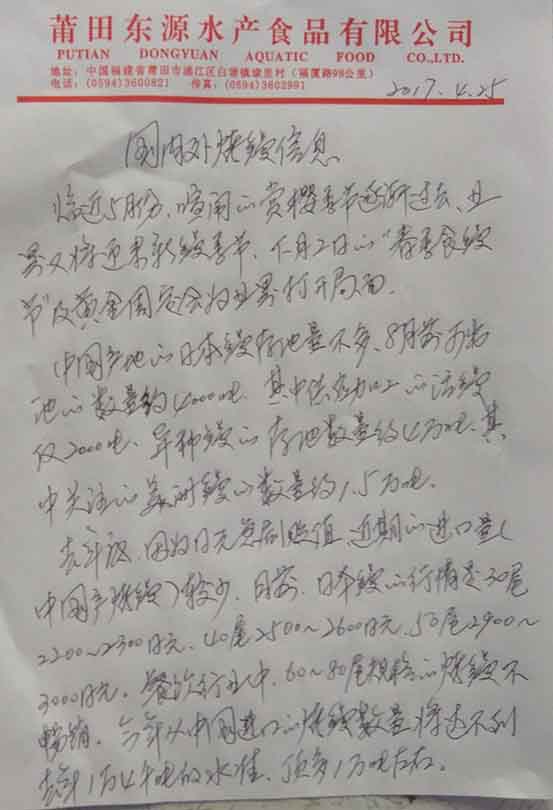 莆田东源水产食品有限公司
PUTIAN DONGYUAN AQUATIC FOOD CO.,LTD.
地址：中国福建省莆田市涵江区白塘镇埭里村（福厦路98公里）
电话：(0594)3600821 传真：(0594)3602991
2017.4.25
国内外烤鳗信息
临近5月份、喧闹的赏樱季节逐渐过去、业
界又将迎来新鳗季节、5月2日的“春季食鳗
节”及黄金周定会为业界打开局面.
中国产地的日本鳗存池量不多、8月前可出
池的数量约4000吨、其中供应加工的活鳗
仅2000吨、异种鳗的存池数量约4万吨、其
中关注的美洲鳗的数量约1.5万吨.
去年底、因为日元急剧贬值、近期的进口量(
中国产烤鳗)较少、目前、日本鳗的行情是30尾
2200～2300日元、40尾2500～2600日元、50尾2900～
3000日元. 餐饮行业中、60～80尾规格的烤鳗不
畅销. 今年从中国进口的烤鳗数量将达不到
去年1万4千吨的水准、顶多1万吨左右.